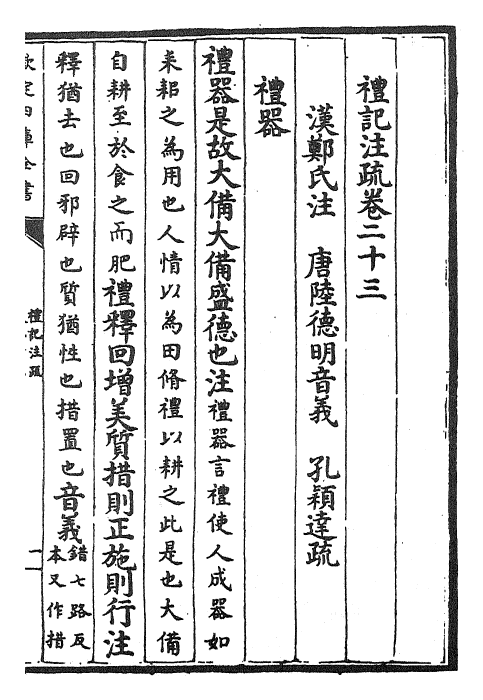 禮記注疏卷二十三
漢鄭氏注　唐陸德明音義　孔穎達疏
禮器
禮器是故大備大備盛德也注禮器言禮使人成器如
耒耜之為用也人情以為田脩禮以耕之此是也大備
自耕至於食之而肥禮釋回增美質措則正施則行注
釋猶去也回邪辟也質猶性也措置也音義錯七路反
本又作措
欽定四庫全書
禮記注疏
一